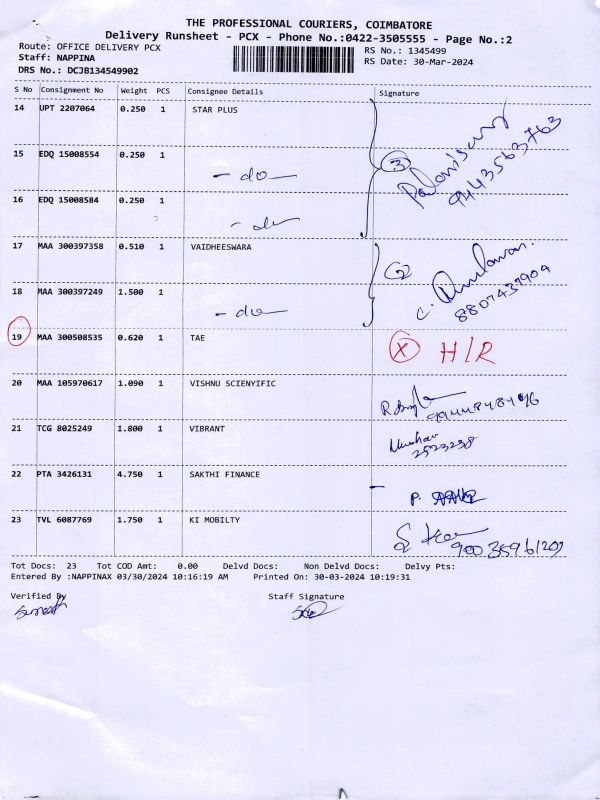 THE PROFESSIONAL COURIERS, COIMBATORE
Delivery Runsheet - PCX - Phone No.:0422-3505555 - Page No.:2
Route: OFFICE DELIVERY PCX
RS No.: 1345499
Staff: NAPPINA
RS Date: 30-Mar-2024
DRS No.: DCJB134549902
S No Consignment No Weight PCS Consignee Details Signature
14 UPT 2207064 0.250 1 STAR PLUS
15 EDQ 15008554 0.250 1 - do -
3
9443563763
16 EDQ 15008584 0.250 1 - do -
17 MAA 300397358 0.510 1 VAIDHEESWARA
2
18 MAA 300397249 1.500 1 - do -
8807437904
19 MAA 300508535 0.620 1 TAE X H/R
20 MAA 105970617 1.090 1 VISHNU SCIENYIFIC
21 TCG 8025249 1.800 1 VIBRANT
2523238
22 PTA 3426131 4.750 1 SAKTHI FINANCE
23 TVL 6087769 1.750 1 KI MOBILTY
Tot Docs: 23 Tot COD Amt: 0.00 Delvd Docs: Non Delvd Docs: Delvy Pts:
Entered By :NAPPINAX 03/30/2024 10:16:19 AM Printed On: 30-03-2024 10:19:31
Verified By Staff Signature